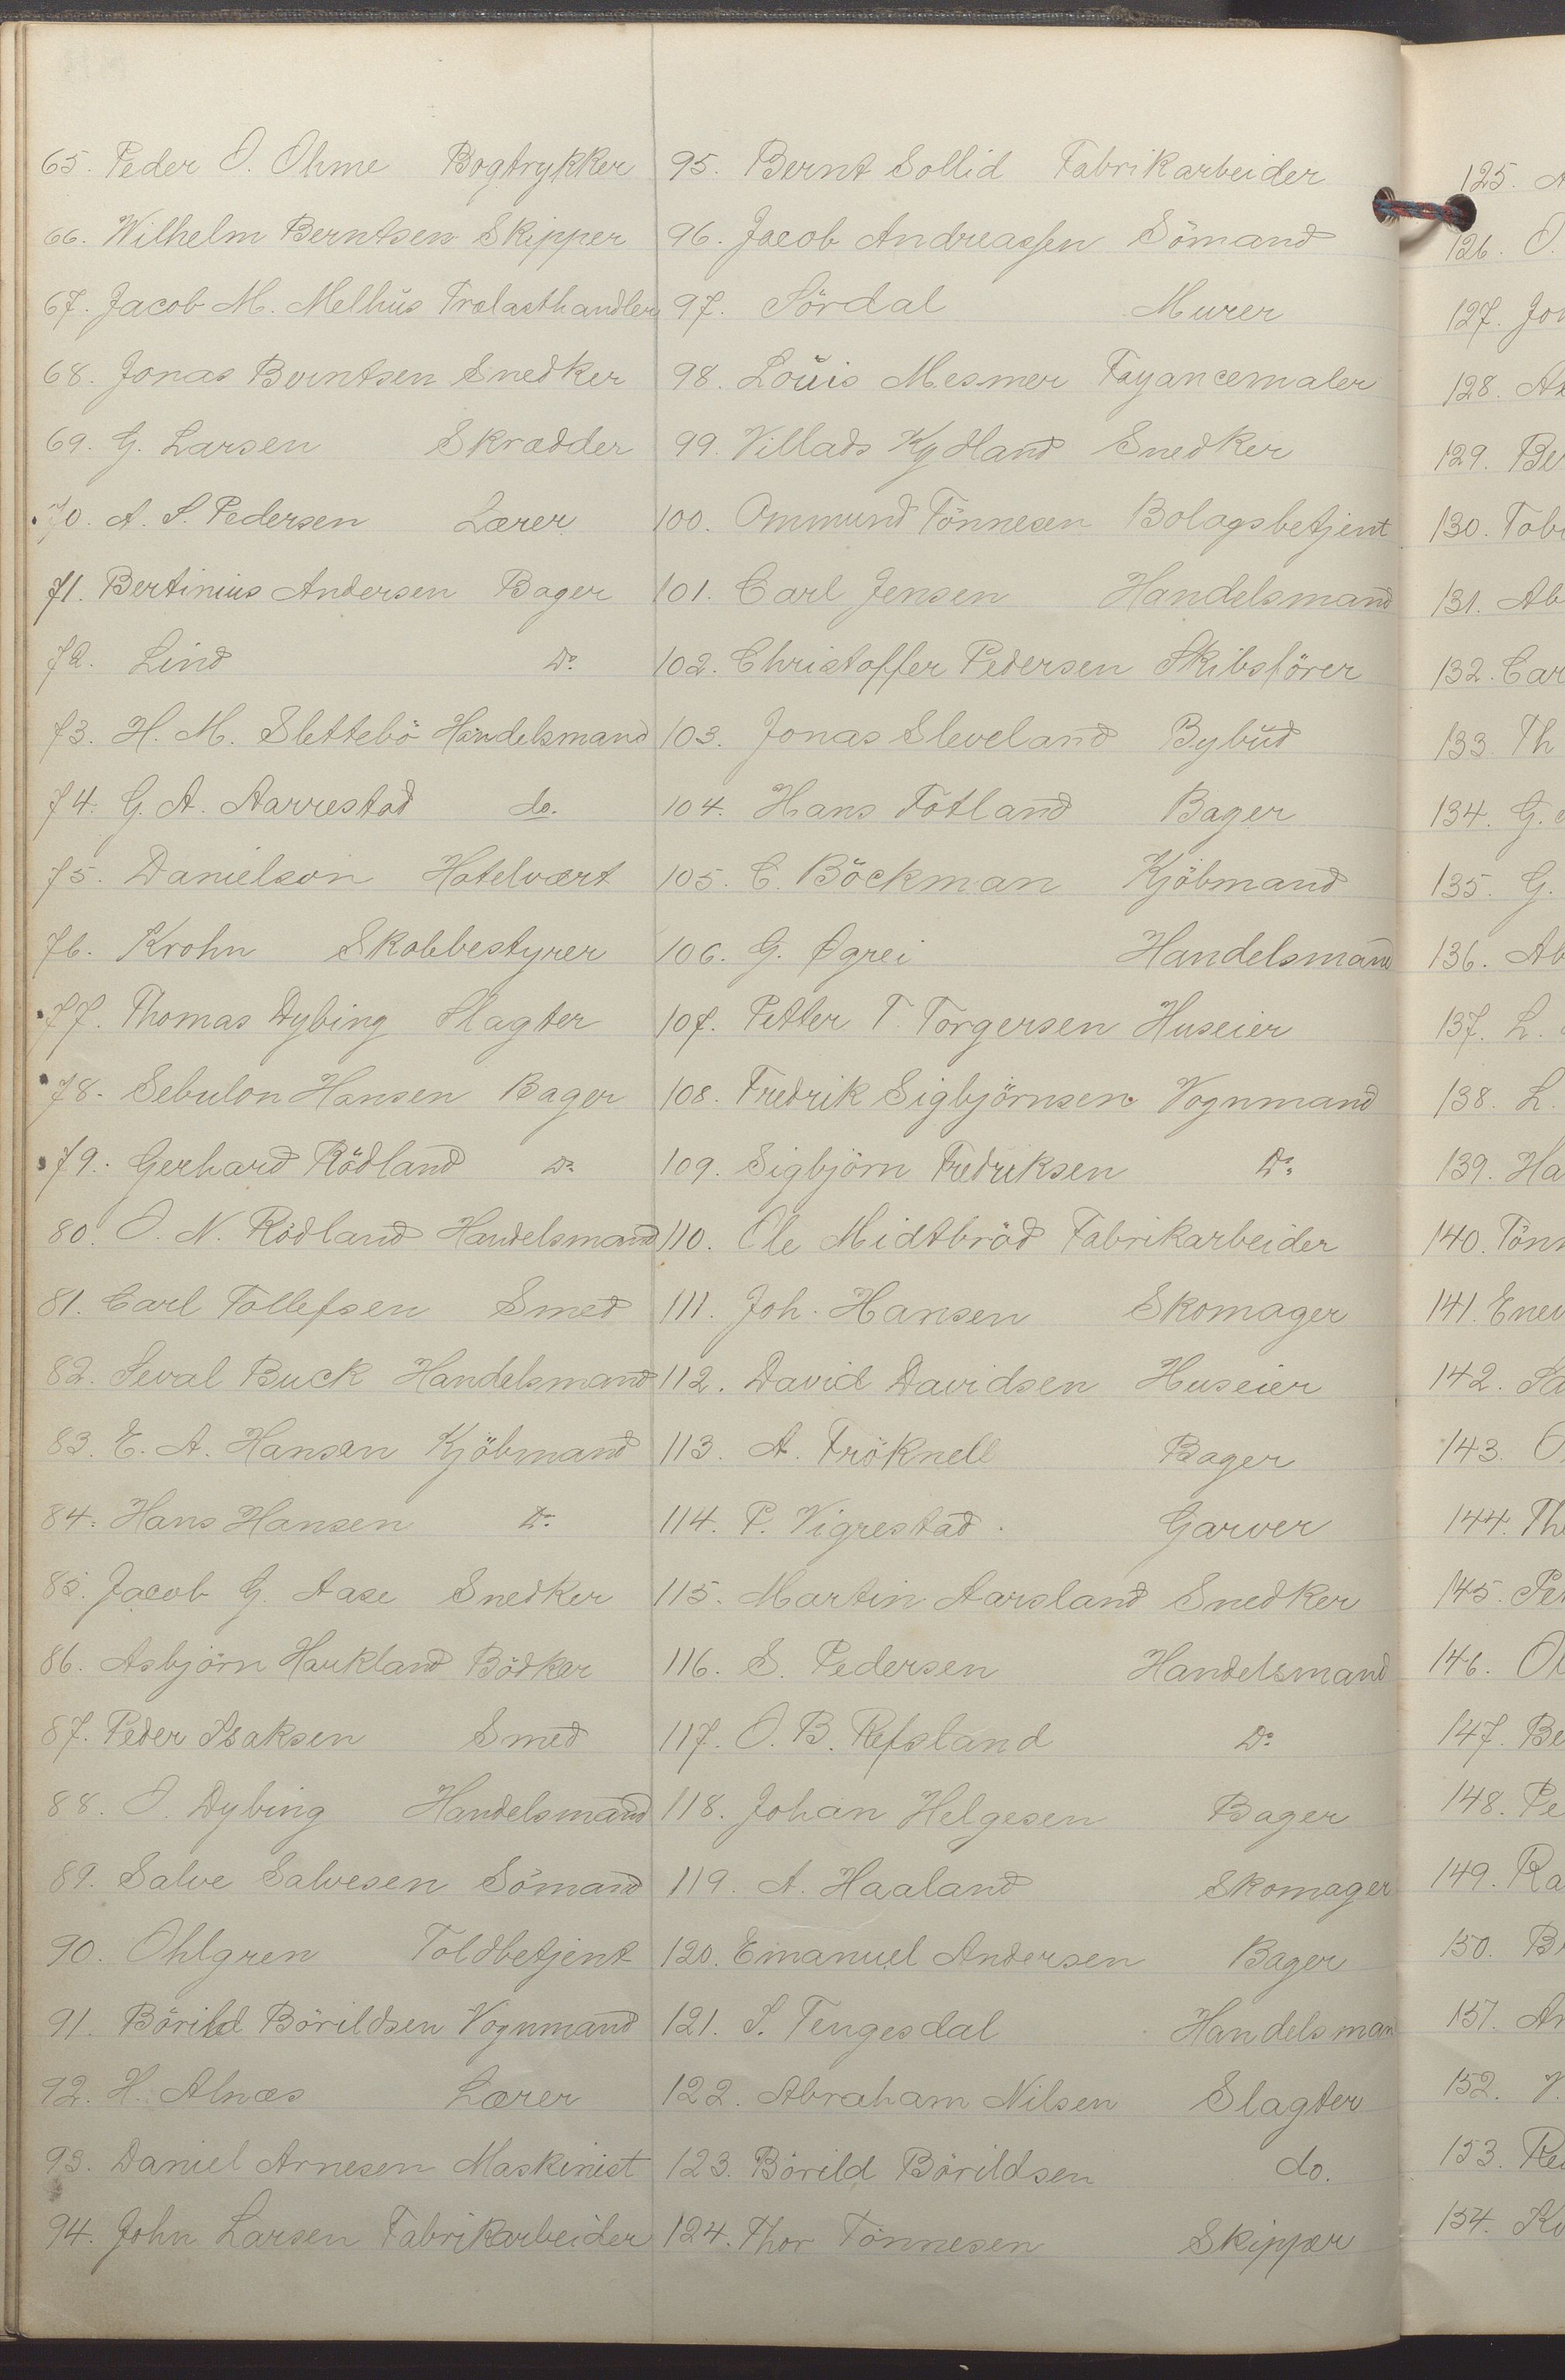 65. Peder O. Ohme Bogtrykker
66. Wilhelm Berntsen Skipper
67. Jacob M. Melhus Trælasthandler
68. Jonas Berntsen Snedker
69. G. Larsen Skrædder
70. A. S. Pedersen Lærer
71. Bertinius Andersen Bager
72. Lind Do.
73. H. M. Slettebö Handelsmand
74. G. A. Aarrestad do.
75. Danielson Hotelvært
76. Krohn Skolebestyrer
77. Thomas Dybing Slagter
78. Sebulon Hansen Bager
79. Gerhard Rödland Do.
80. O. N. Rödland Handelsmand
81. Carl Tollefsen Smed
82. Seval Buck Handelsmand
83. E. A. Hansen Kjöbmand
84. Hans Hansen Do.
85. Jacob G. Aase Snedker
86. Asbjörn Haukland Bödker
87. Peder Isaksen Smed
88. O. Dybing Handelsmand
89. Salve Salvesen Sömand
90. Ohlgren Toldbetjent
91. Börild Börildsen Vognmand
92. H. Alnæs Lærer
93. Daniel Arnesen Maskinist
94. John Larsen Fabrikarbeider
95. Bernt Sollid Fabrikarbeider
96. Jacob Andreassen Sömand
97. Sördal Murer
98. Louis Mesmer Fayancemaler
99. Villads Kydland Snedker
100. Ommund Tönnesen Bolagsbetjent
101. Carl Jensen Handelsmand
102. Christoffer Pedersen Skibsförer
103. Jonas Sleveland Bybud
104. Hans Fotland Bager
105. C. Böckman Kjöbmand
106. G. Øgrei Handelsmand
107. Petter T. Torgersen Huseier
108. Fredrik Sigbjörnsen Vognmand
109. Sigbjörn Fredriksen Do.
110. Ole Midtbröd Fabrikarbeider
111. Joh. Hansen Skomager
112. David Davidsen Huseier
113. A. Fröknell Bager
114. P. Vigrestad. Garver
115. Martin Aarsland Snedker
116. S. Pedersen Handelsmand
117. O. B. Refsland Do.
118. Johan Helgesen Bager
119. A. Haaland Skomager
120. Emanuel Andersen Bager
121. S. Tengesdal Handelsman
122. Abraham Nilsen Slagter
123. Börild Börildsen do.
124. Thor Tönnesen Skipper
125. A
126. O.
127. Joh
128.
129. Be
130. Tobi
131. Ab
132. Car
133. Th
134. G.
135. G.
136. Ab
137. L.
138. L.
139. Ha
140. Tönn
141. Enev
142.
143. O
144. Th
145. Pe
146. Ol
147. Be
148. Pe
149. Ra
150. B
151. An
152.
153. Re
154.